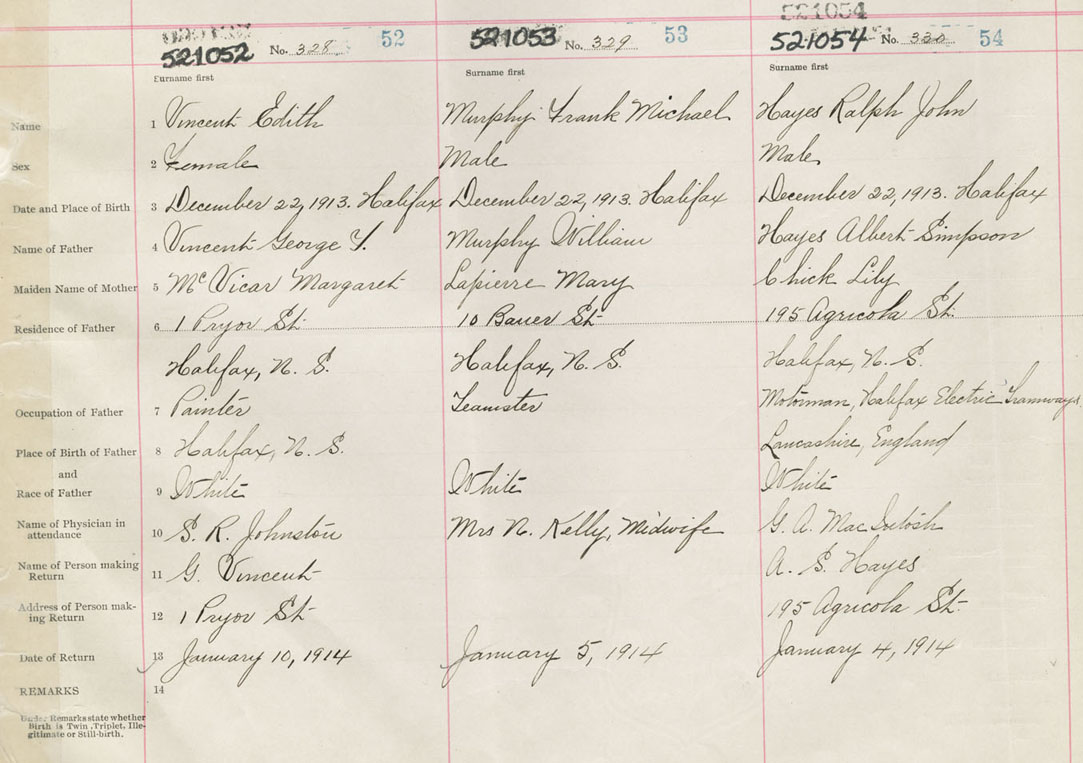 521054
521052 No. 328 52 521053 No. 329 53 521054 No. 330 54
Surname first Surname first Surname first
Name 1 Vincent Edith Murphy Frank Michael Hayes Ralph John
Sex 2 Female Male Male
Date and Place of Birth 3 December 22, 1913. Halifax December 22, 1913. Halifax December 22, 1913. Halifax
Name of Father 4 Vincent George Murphy William Hayes Albert Simpson
Maiden Name of Mother 5 McVicar Margaret Lapierre Mary Chick Lily
Residence of Father 6 1 Pryor St. 10 Bauer St. 195 Agricola St.
Halifax, N. S. Halifax, N. S. Halifax, N. S.
Occupation of Father 7 Painter Teamster Motorman, Halifax Electric Tramways
Place of Birth of Father 8 Halifax, N. S. Lancashire, England
and
Race of Father 9 White White White
Name of Physician in
attendance 10 S. R. Johnston Mrs N. Kelly, Midwife G. A. MacIntosh
Name of Person making
Return 11 G. Vincent A. S. Hayes
Address of Person mak-
ing Return 12 1 Pryor St. 195 Agricola St.
Date of Return 13 January 10, 1914 January 5, 1914 January 4, 1914
REMARKS 14
Under Remarks state whether
Birth is Twin, Triplet, Ille-
gitimate or Still-birth.